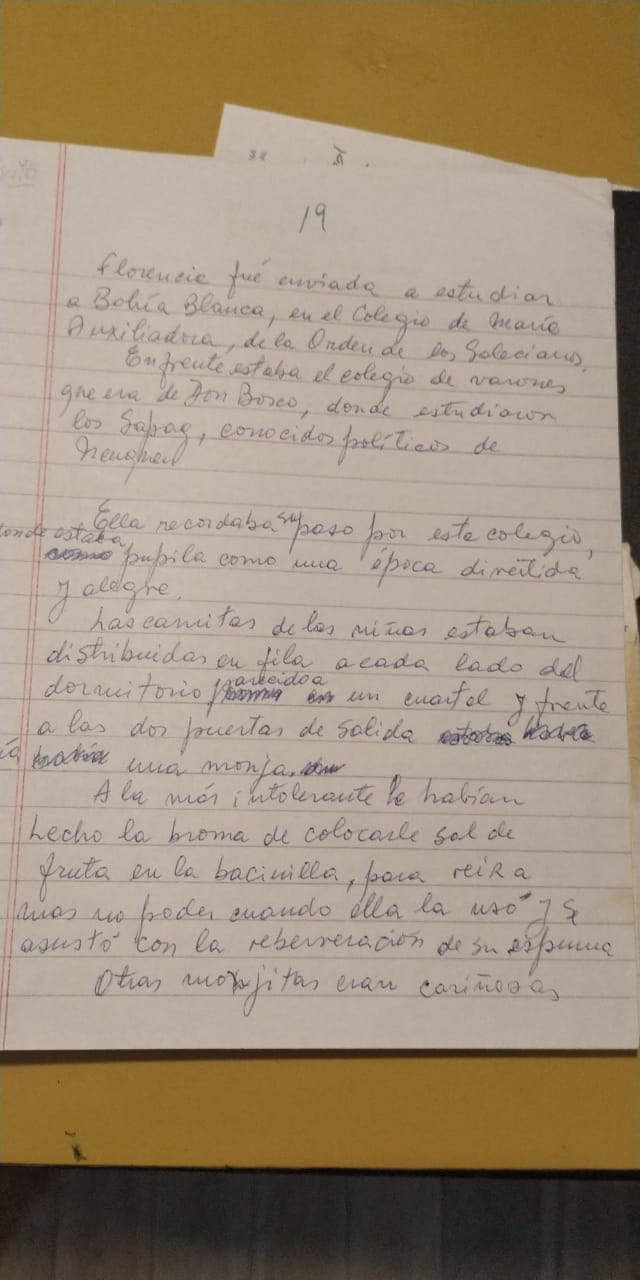 19
Florencia fué enviada a estudiar
a Bahía Blanca, en el Colegio de María
Auxiliadora, de la Orden de los Salecianos,
Enfrente estaba el colegio de varones
que era de Don Bosco, donde estudiaron
los Sapag, conocidos políticos de
Neuquen
Ella recordaba su paso por este colegio,
donde estaba pupila como una época divertida
y alegre.
Las camitas de las niñas estaban
distribuidas en fila a cada lado del
dormitorio parecido a un cuartel y frente
a las dos puertas de salida
una monja.
A la más intolerante le habían
hecho la broma de colocarle sal de
fruta en la bacinilla, para reir a
mas no poder cuando ella la usó y se
asustó con la reberveración de su espuma
Otras monjitas eran cariñosas